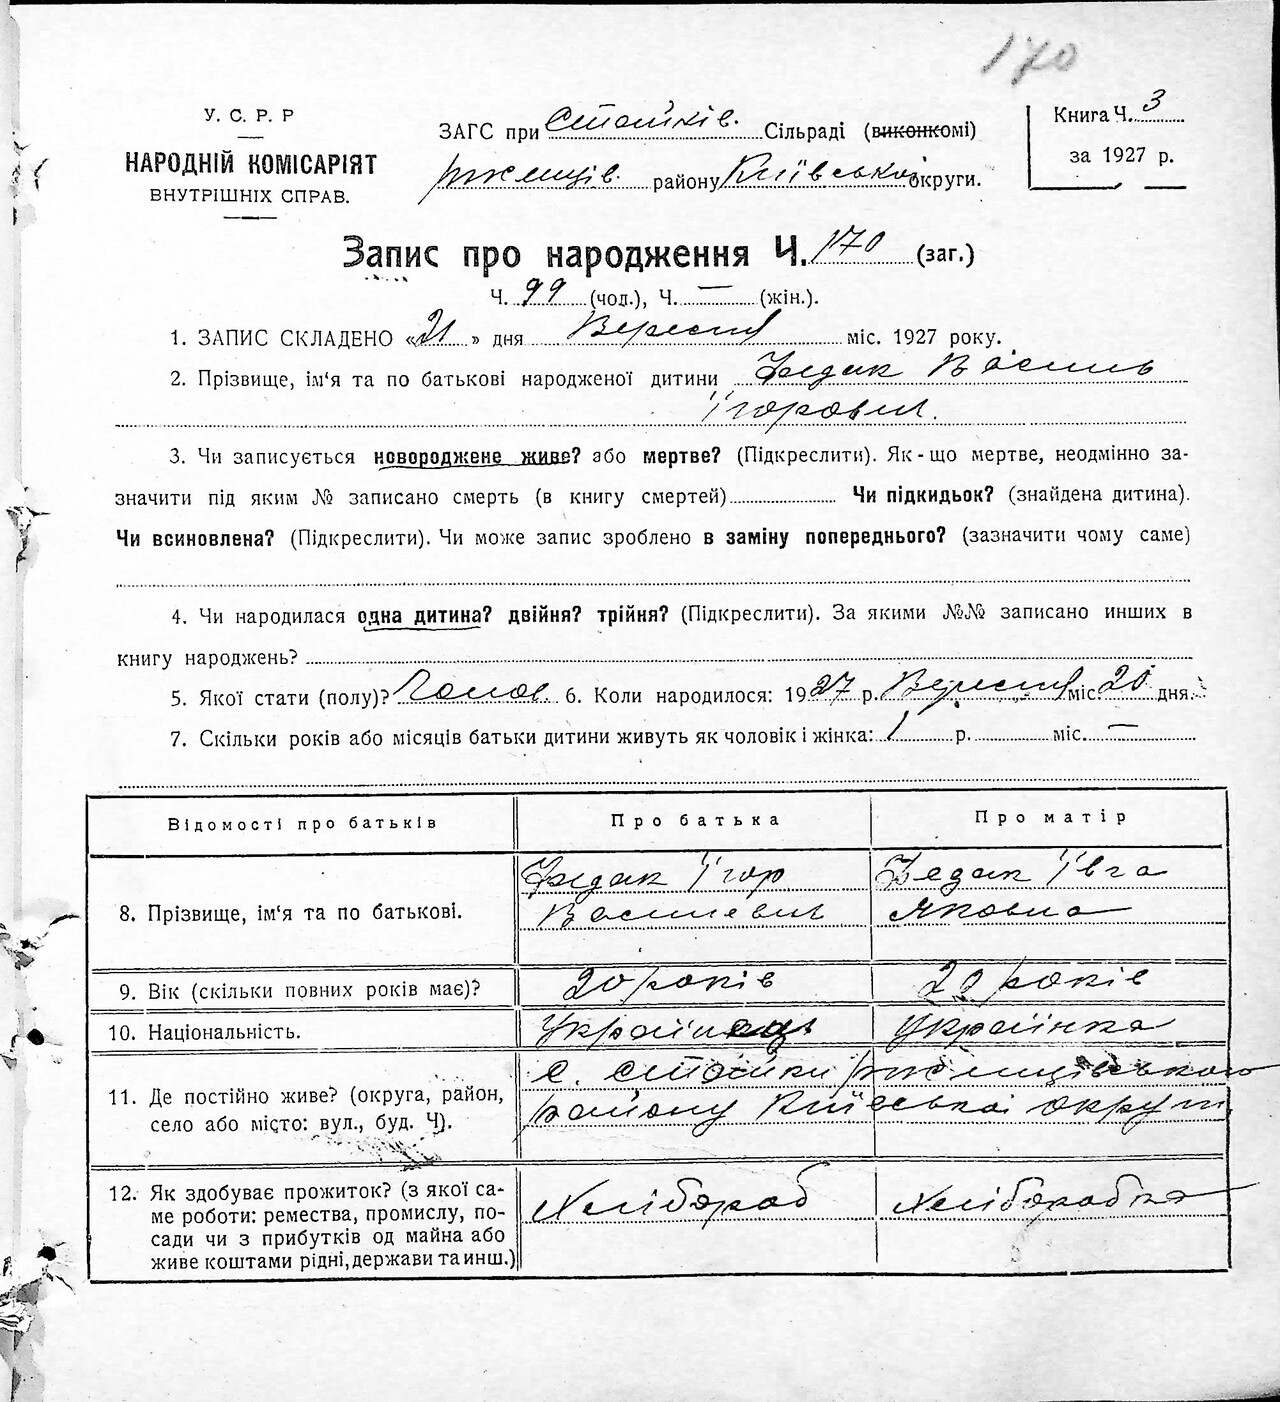 170
У. С. Р. Р
НАРОДНІЙ КОМІСАРІЯТ
ВНУТРІШНІХ СПРАВ.
ЗАГС при Стайків. Сільраді (виконкомі)
Ржищів. району Київської округи.
Книга Ч. 3
за 1927 р.
Запис про народження Ч. 170 (заг.)
Ч. 99 (чол.), Ч. — (жін.).
1. ЗАПИС СКЛАДЕНО «21» дня Вересня міс. 1927 року.
2. Прізвище, ім'я та по батькові народженої дитини Федак Василь
Ігорович.
3. Чи записується новороджене живе? або мертве? (Підкреслити). Як-що мертве, неодмінно за-
значити під яким № записано смерть (в книгу смертей) Чи підкидьок? (знайдена дитина).
Чи всиновлена? (Підкреслити). Чи може запис зроблено в заміну попереднього? (зазначити чому саме)
4. Чи народилася одна дитина? двійня? трійня? (Підкреслити). За якими №№ записано инших в
книгу народжень?
5. Якої стати (полу)? Чолов. 6. Коли народилося: 1927 р. Вересня міс. 20 дня.
7. Скільки років або місяців батьки дитини живуть як чоловік і жінка: 1 р. міс. —
Відомості про батьків Про батька Про матір
8. Прізвище, ім'я та по батькові. Федак Ігор Федак Івга
Васильевич Яковна
9. Вік (скільки повних років має)? 20 років 20 років
10. Національність. Українець Українка
11. Де постійно живе? (округа, район, с. Стайки Ржищівського
село або місто: вул., буд. Ч). району Київської округи
12. Як здобуває прожиток? (з якої са- Хлібороб Хліборобка
ме роботи: ремества, промислу, по-
сади чи з прибутків од майна або
живе коштами рідні, держави та инш.)